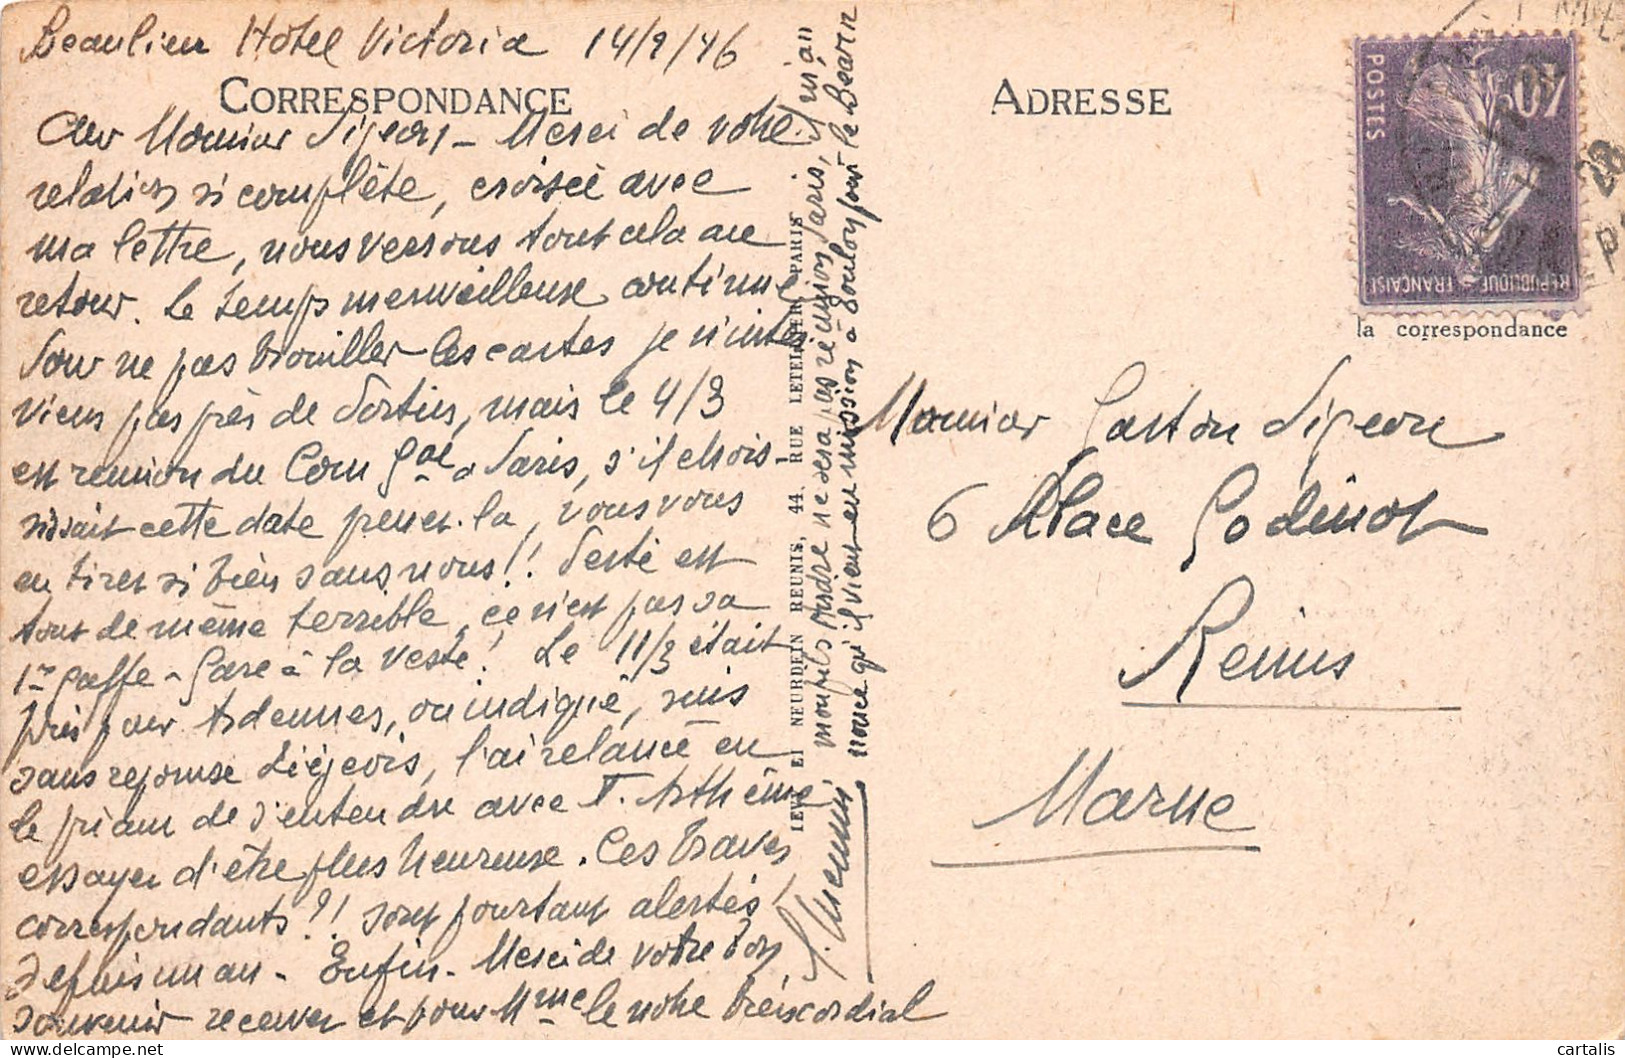 Beaulieu Hôtel Victoria 14/2/26
CORRESPONDANCE
Cher Monsieur Sigeon - Merci de votre
relation si complète, croisée avec
ma lettre, nous verrons tout cela au
retour. Le temps merveilleux continue
Pour ne pas brouiller les cartes je n'inter
viens pas près de mais le 4/3
est reunion du Com Gal à Paris, s'il chois-
issait cette date prenez-la, vous vous
en tirez si bien sans nous!! est
tout de même terrible, ce n'est pas sa
1re gaffe - Gare à la veste! Le 11/3 était
pris pour Ardennes, ou indiqué, suis
sans reponse Liégeois, l'ai relancé en
le priant de s'entendre avec
essayer d'être plus heureuse. Ces braves
correspondants?! sont pourtant alertés
depuis un an - Enfin - Merci de votre bon
souvenir recevez et pour Mme le notre bien cordial
LEVY ET NEURDEIN REUNIS, 44, RUE LETELLIER, PARIS
mon fils André ne sera pas réunion Paris, il m'an
nonce qu'il vient en mission à Toulon pour le Béarn
ADRESSE
POSTES
40c
REPUBLIQUE FRANÇAISE
la correspondance
Monsieur Gaston Sigeon
6 Place Godinot
Reims
Marne
cartalis